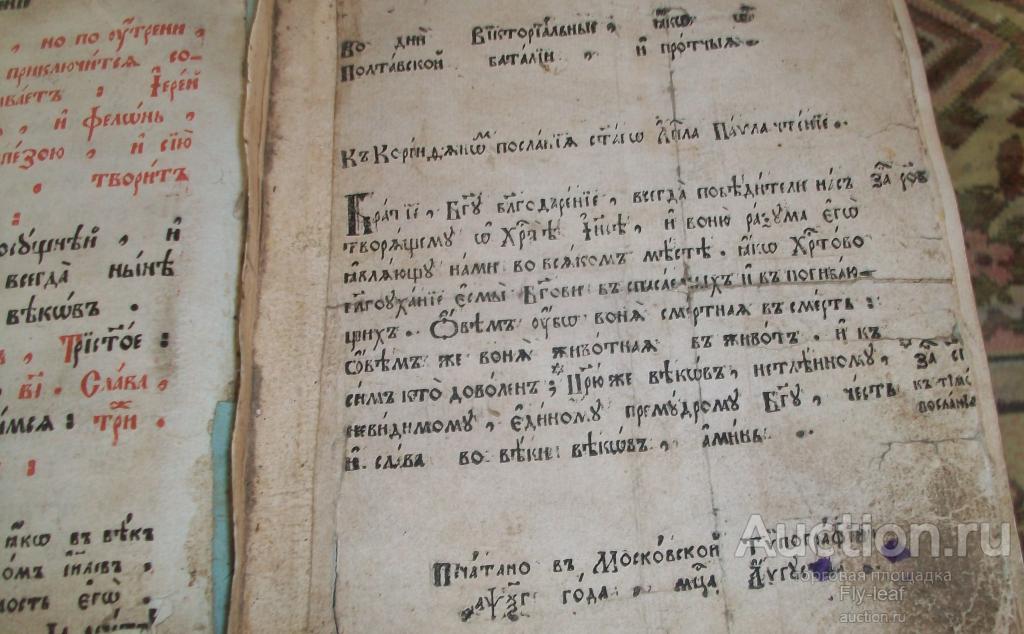 , но по оу҆́трени ,
приключи́тсѧ со-
ваетъ : І҆ере́й
, и҆ фело́нь ,
пе́зою , и҆ сїю̀
. твори́тъ
:
, и҆
всегда̀ ны́нѣ
вѣкѡ́въ .
, Трист҃о́е :
в҃і . Сла́ва ,
имсѧ : три̑ .
:
ꙗ҆́кѡ въ вѣ́къ
є҆гѡ̀ .
Во дни̑ Ви́кторїальные , ꙗ҆́кѡ ѡ҆
Полта́вской бата́лїи , и҆ про́тчыѧ .
Къ Кори́нѳѧнѡмъ посла́нїѧ ст҃а́гѡ А҆п҃ла Па́ѵла чте́нїе .
Бра́тїе , Бг҃у бл҃годаре́нїе , всегда̀ побѣди́тели на́съ за҄ ро҃в
творѧ́щему ѡ҆ Хр҇тѣ̀ І҆и҃сѣ , и҆ воню̀ ра́зума є҆гѡ̀
ꙗ҆влѧ́ющу на́ми во всѧ́комъ мѣ́стѣ . ꙗ҆́кѡ Хр҇то́во
бл҃гоуха́нїе є҆смы̀ Бг҃ови въ спаса́емыхъ и҆ въ погиба́ю-
щихъ . Ѻ҆́вѣмъ оу҆́бѡ вонѧ̀ сме́ртнаѧ въ сме́рть :
ѻ҆́вѣмъ же вонѧ̀ живо́тнаѧ въ живо́тъ . и҆ къ
си̑мъ кто̀ дово́ленъ ; Цр҃ю́ же вѣкѡ́въ , нетлѣ́нному ,
неви́димому , є҆ди́ному прему́дрому Бг҃у , че́сть
и҆ сла́ва во вѣ́ки вѣкѡ́въ , а҆ми́нь .
къ тїмо
посланіе
Печа́тано въ Моско́вской Тѵпогра́фїи
го́да , мц҇а А҆́ѵгуста
Auction.ru
торговая площадка
Fly-leaf
auction.ru